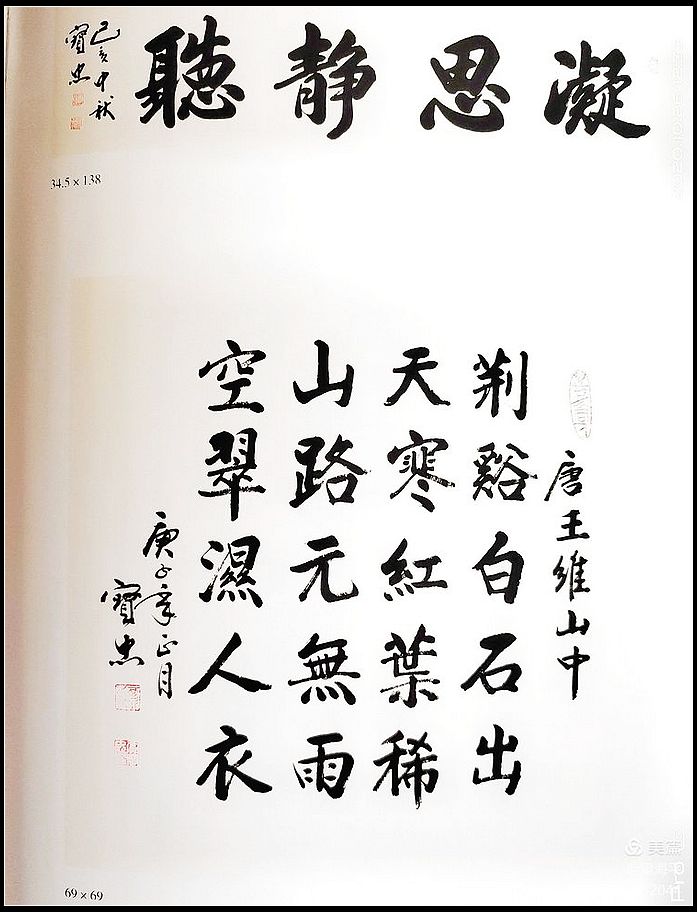 凝思静聽
己亥中秋
寶忠
34.5 × 138
唐王維山中
荆谿白石出
天寒紅葉稀
山路元無雨
空翠濕人衣
庚子年正月
寶忠
69 × 69
美篇